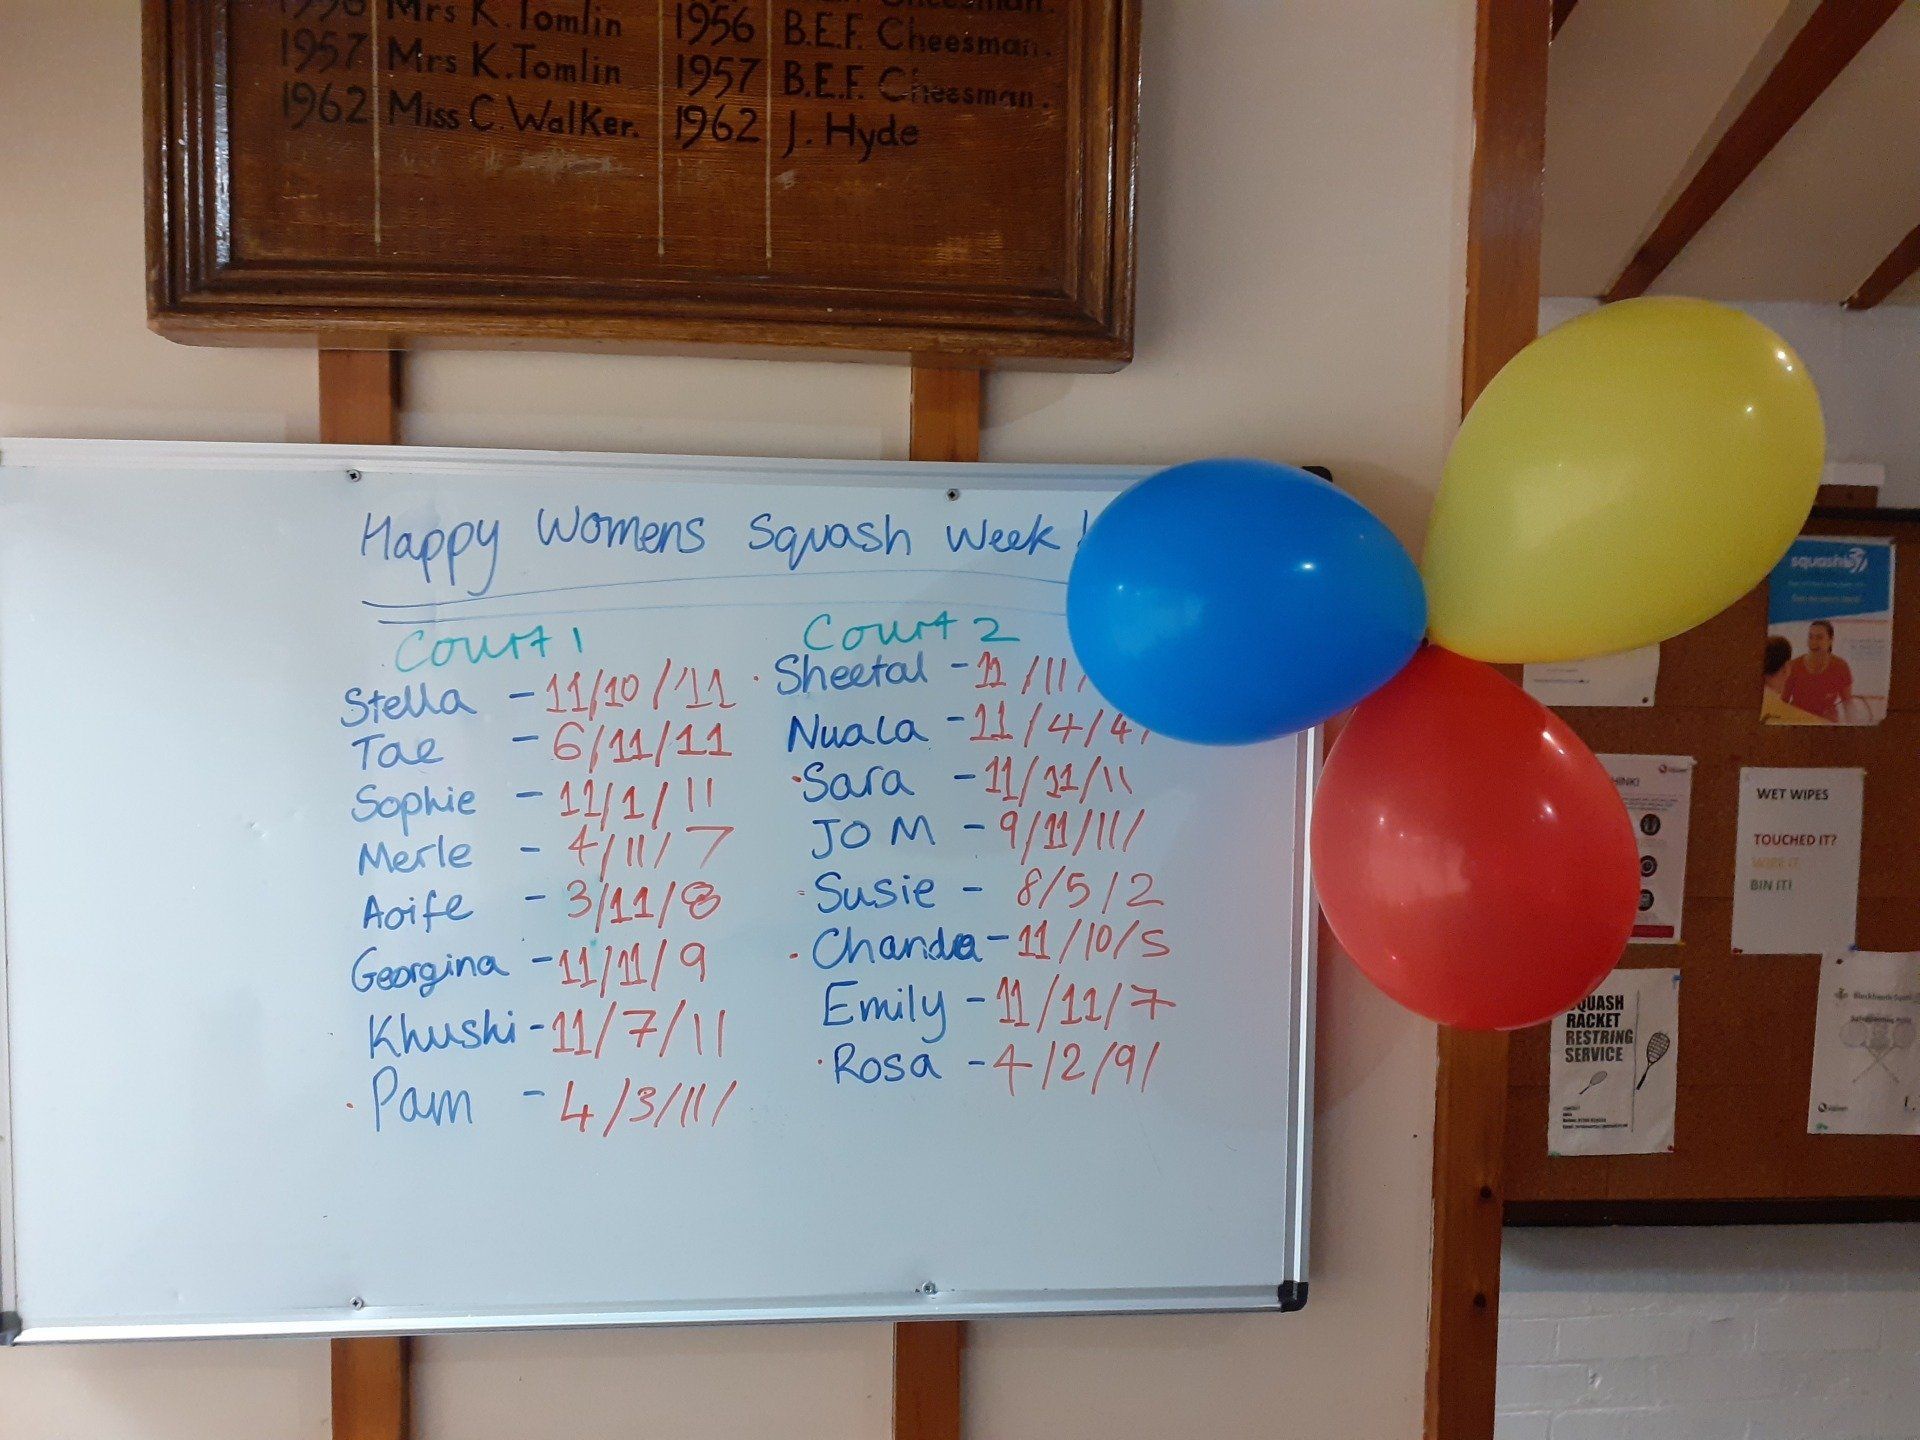 Mrs K. Tomlin 1956 B.E.F. Cheesman.
1957 Mrs K. Tomlin 1957 B.E.F. Cheesman.
1962 Miss C. Walker. 1962 J. Hyde
Happy Womens Squash Week!
Court 1
Stella - 11/10/11
Tae - 6/11/11
Sophie - 11/1/11
Merle - 4/11/7
Aoife - 3/11/8
Georgina - 11/11/9
Khushi - 11/7/11
Pam - 4/3/11/
Court 2
Sheetal - 11/11/
Nuala - 11/4/4/
Sara - 11/11/11
JO M - 9/11/11/
Susie - 8/5/2
Chanda - 11/10/5
Emily - 11/11/7
Rosa - 4/2/9/
WET WIPES
TOUCHED IT?
WIPE IT
BIN IT!
SQUASH
RACKET
RESTRING
SERVICE